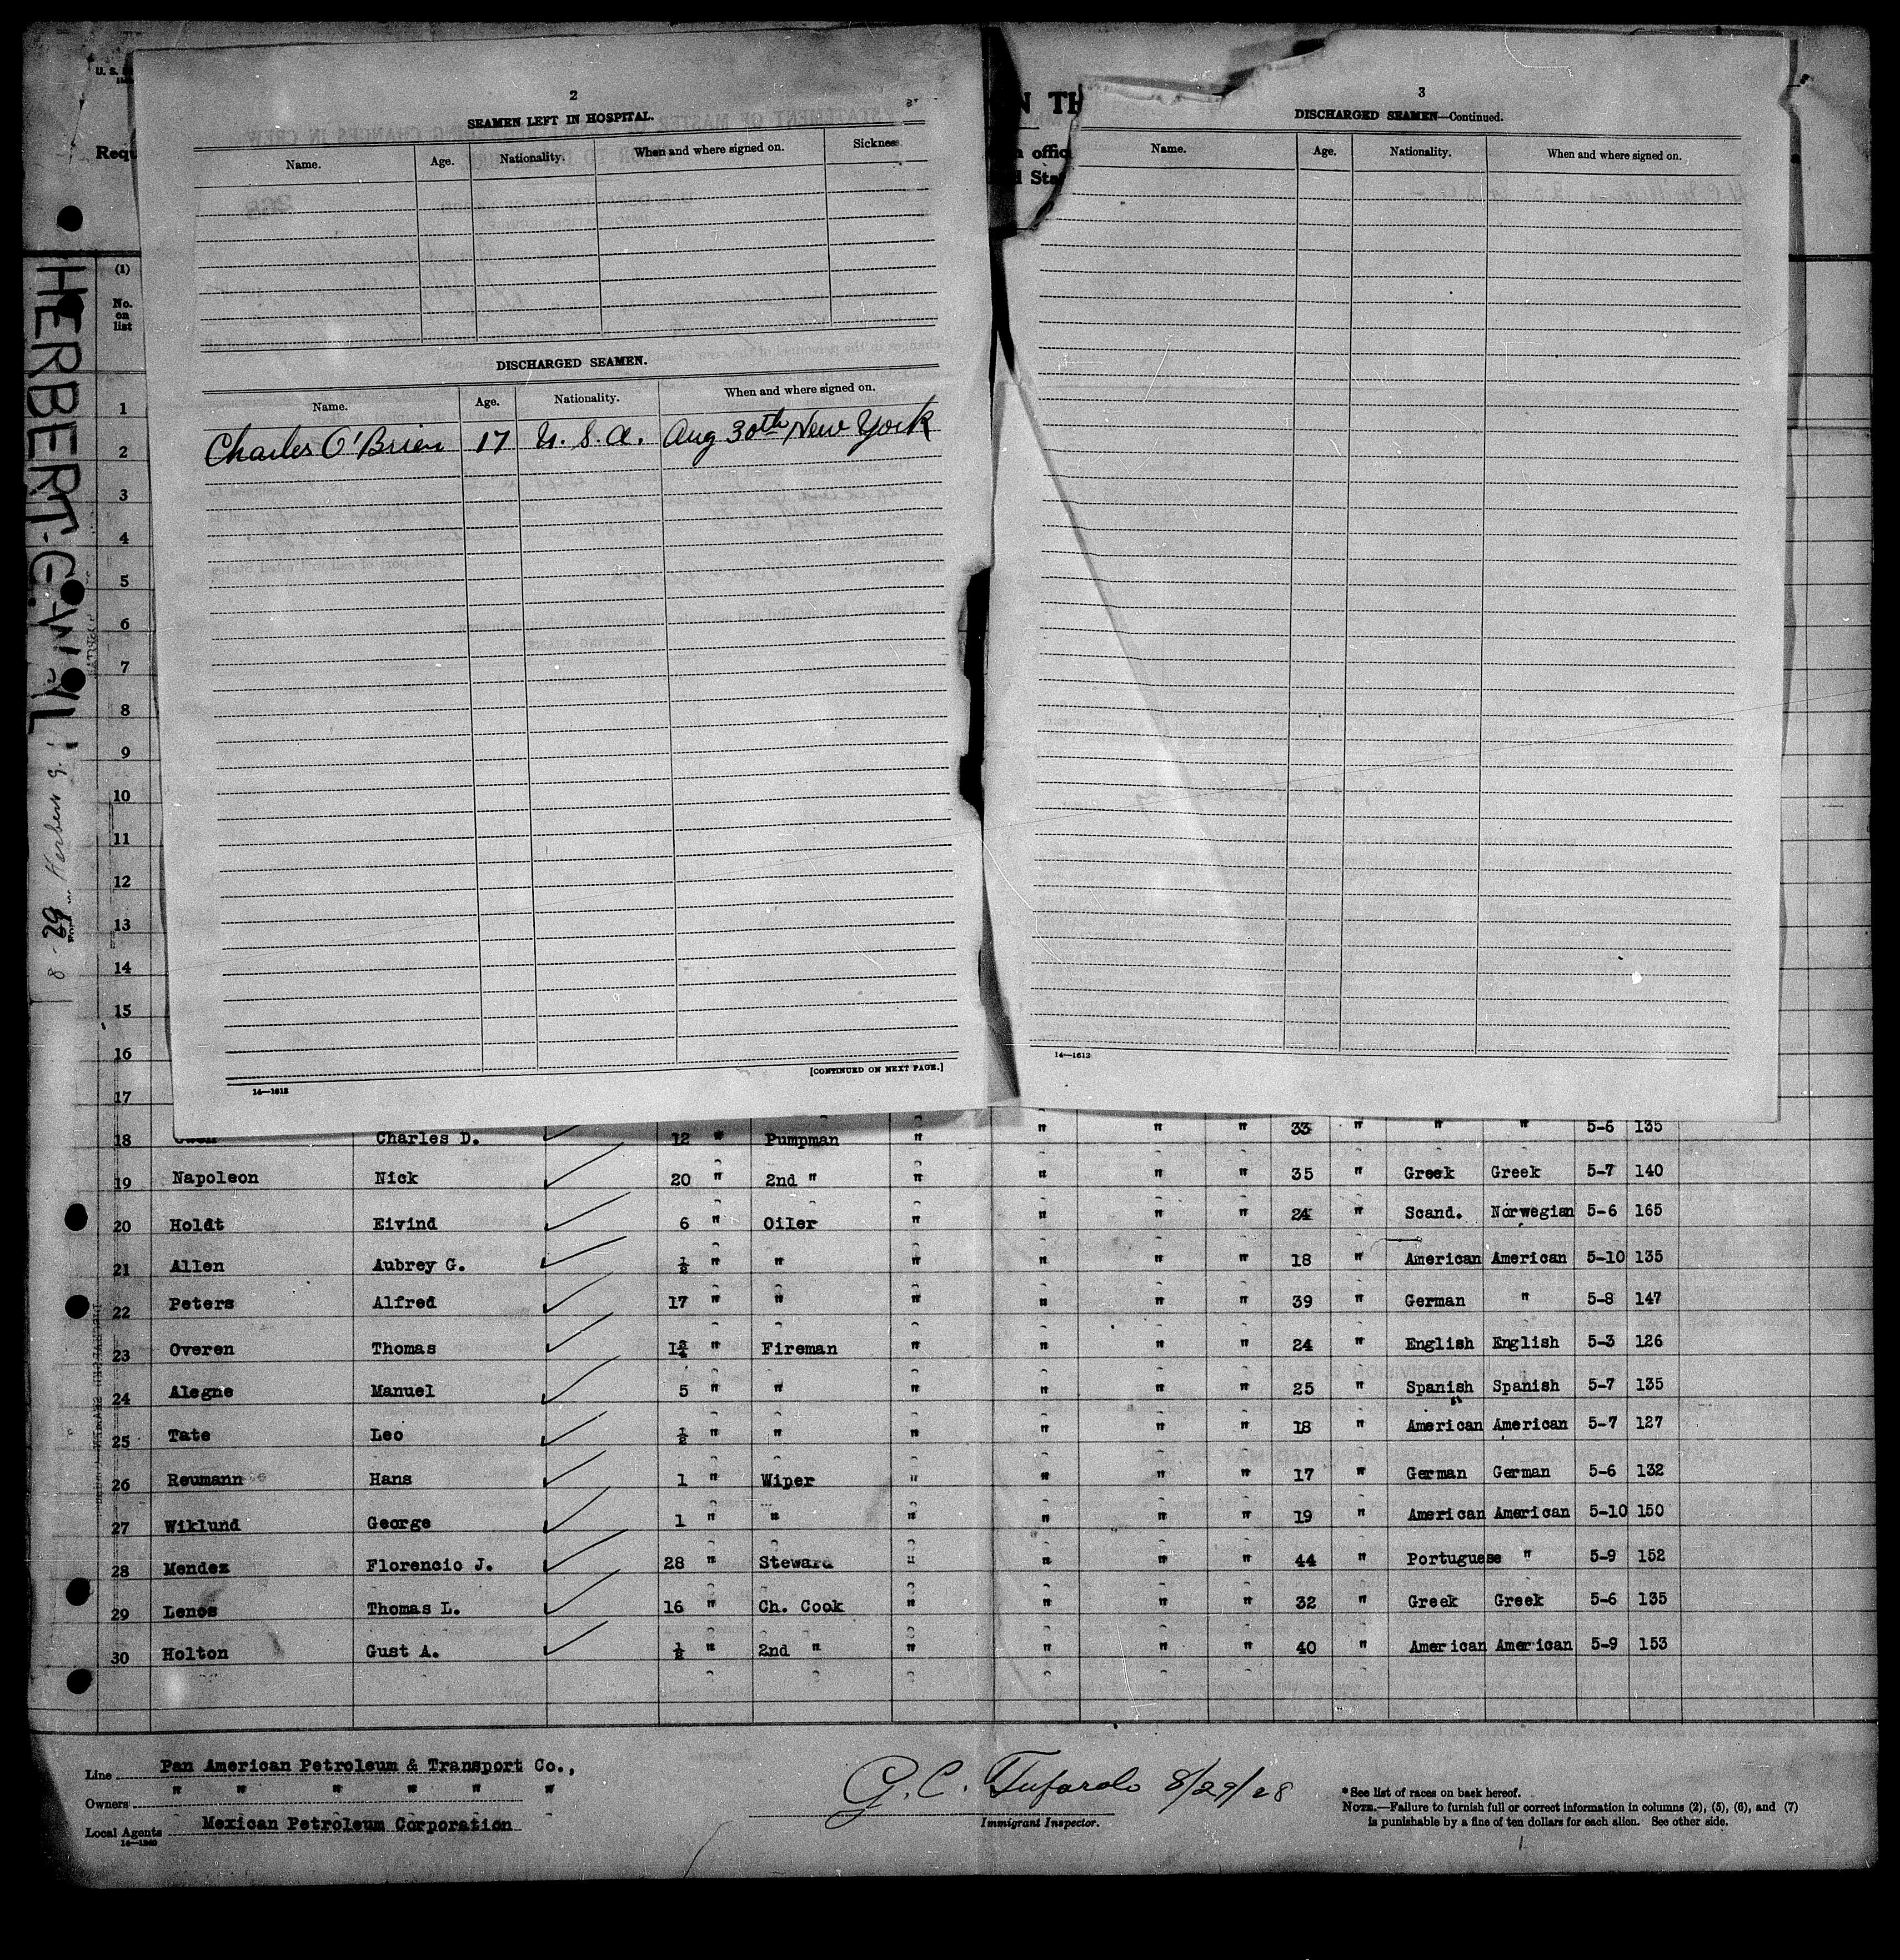 2
SEAMEN LEFT IN HOSPITAL.
Name. Age. Nationality. When and where signed on. Sickness.
DISCHARGED SEAMEN.
Name. Age. Nationality. When and where signed on.
Charles O'Brien 17 U. S. A. Aug 30th New York
[CONTINUED ON NEXT PAGE.]
14—1613
3
DISCHARGED SEAMEN—Continued.
Name. Age. Nationality. When and where signed on.
14—1613
U. S.
Requ
N TH
offic
d Sta
HERBERT G. WYLIE
8-29 Herbert G.
(1)
No.
on
list
1
2
3
4
5
6
7
8
9
10
11
12
13
14
15
16
17
18 Owen Charles D. 12 " Pumpman " " " " 33 " " " 5-6 135
19 Napoleon Nick 20 " 2nd " " " " " 35 " Greek Greek 5-7 140
20 Holdt Eivind 6 " Oiler " " " " 24 " Scand. Norwegian 5-6 165
21 Allen Aubrey G. ½ " " " " " " 18 " American American 5-10 135
22 Peters Alfred 17 " " " " " " 39 " German " 5-8 147
23 Overen Thomas 1¾ " Fireman " " " " 24 " English English 5-3 126
24 Alegne Manuel 5 " " " " " " 25 " Spanish Spanish 5-7 135
25 Tate Leo ½ " " " " " " 18 " American American 5-7 127
26 Reumann Hans 1 " Wiper " " " " 17 " German German 5-6 132
27 Wiklund George 1 " " " " " " 19 " American American 5-10 150
28 Mendez Florencio J. 28 " Steward " " " " 44 " Portuguese " 5-9 152
29 Lenos Thomas L. 16 " Ch. Cook " " " " 32 " Greek Greek 5-6 135
30 Holton Gust A. ½ " 2nd " " " " " 40 " American American 5-9 153
Line Pan American Petroleum & Transport Co.,
Owners " " " " " "
Local Agents Mexican Petroleum Corporation
14—1240
G. C. Tufarolo 8/29/28
Immigrant Inspector.
*See list of races on back hereof.
NOTE.—Failure to furnish full or correct information in columns (2), (5), (6), and (7)
is punishable by a fine of ten dollars for each alien. See other side.